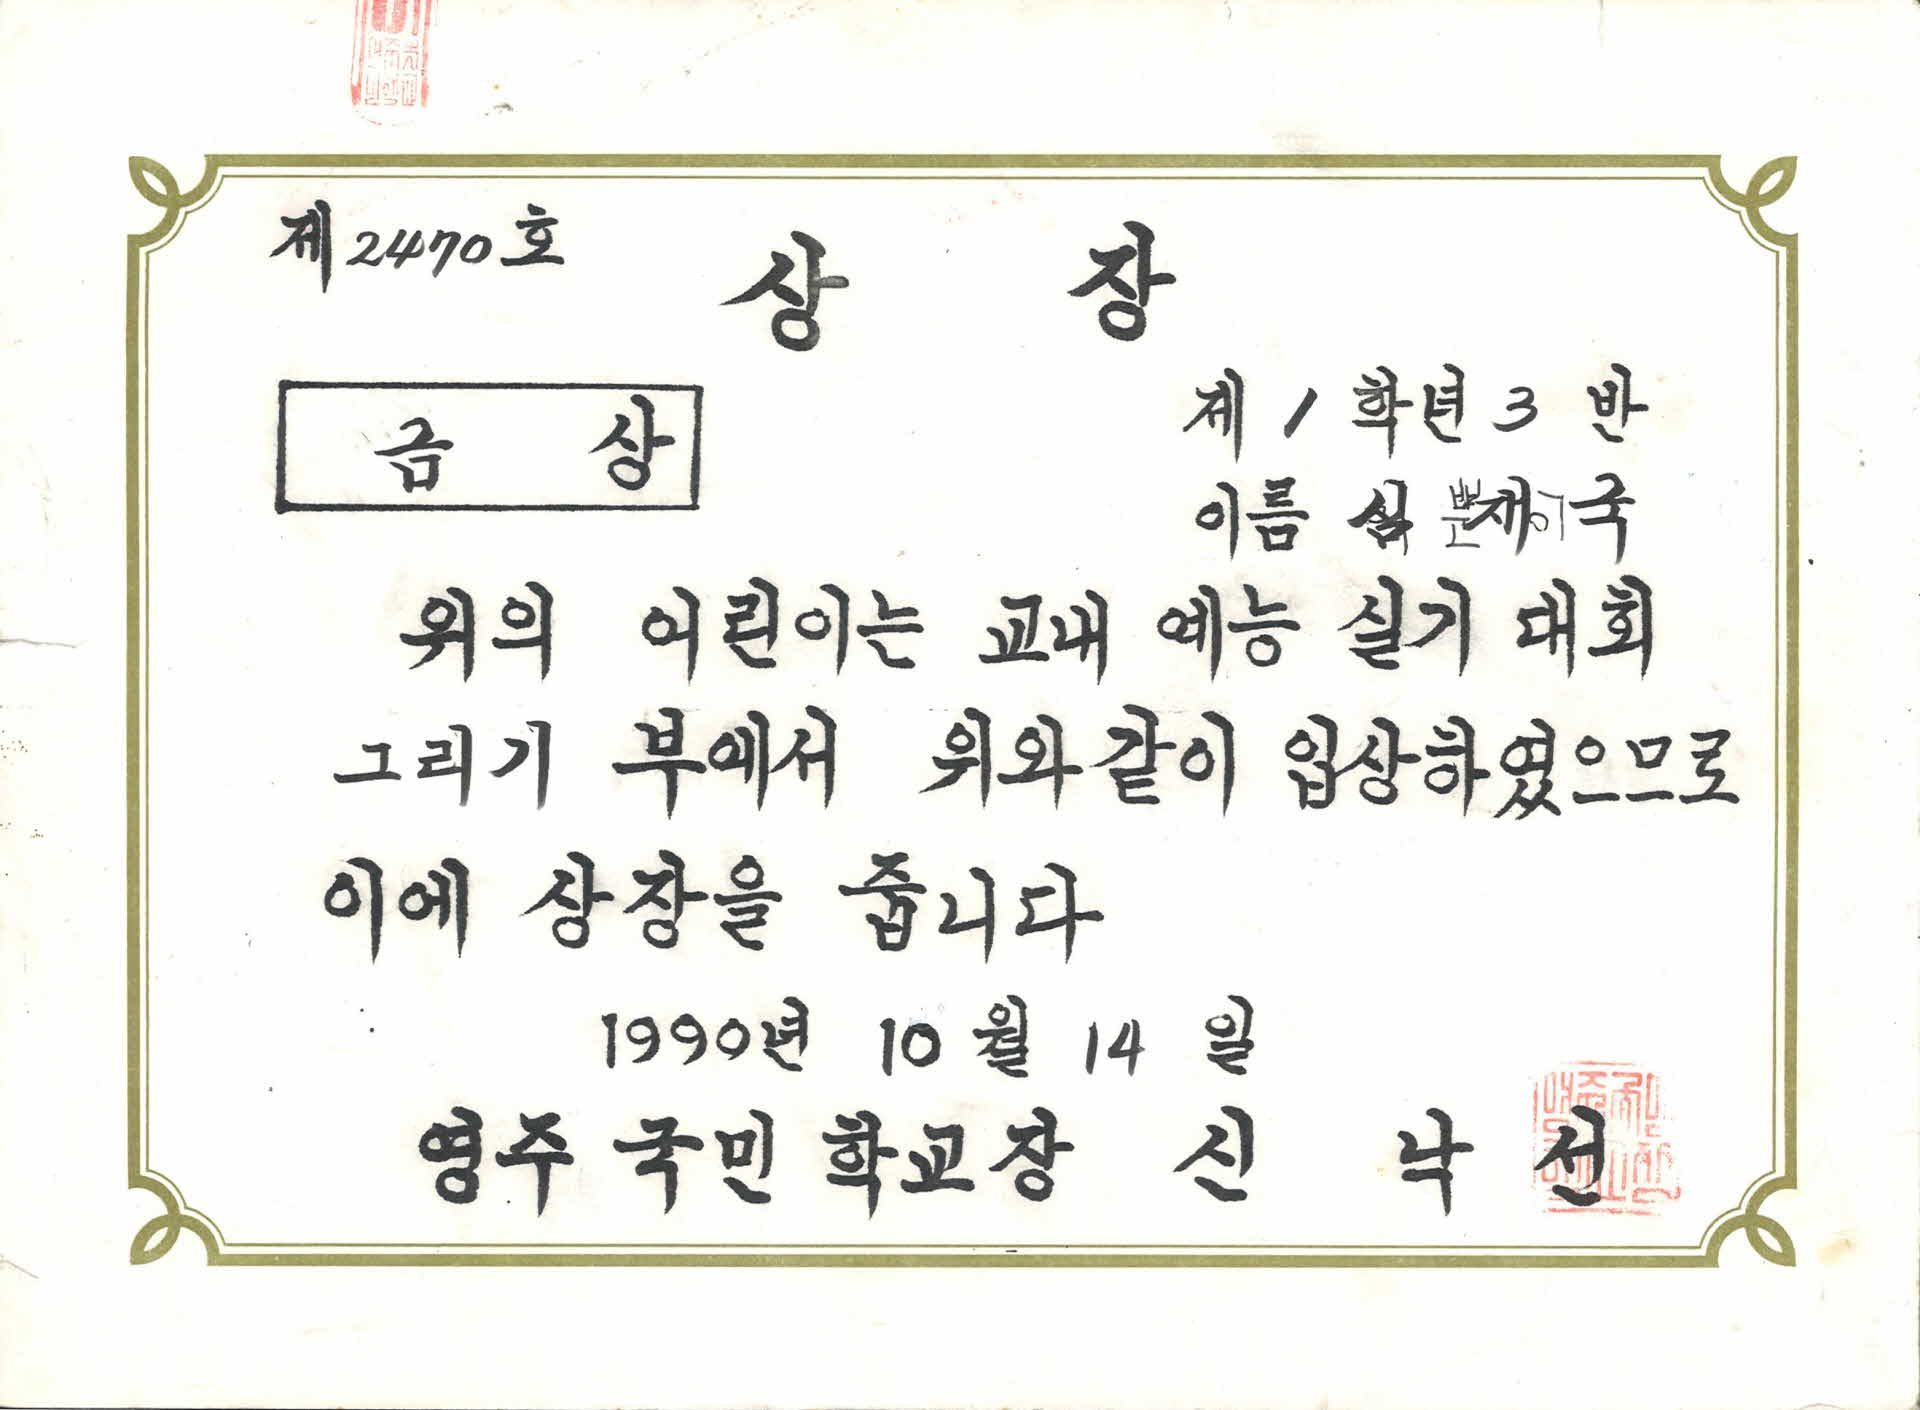 제2470호
상 장
금 상
제 1 학년 3 반
이름 심 재국
위의 어린이는 교내 예능 실기 대회
그리기 부에서 위와같이 입상하였으므로
이에 상장을 줍니다
1990년 10월 14일
영주 국민 학교장 신 낙 선